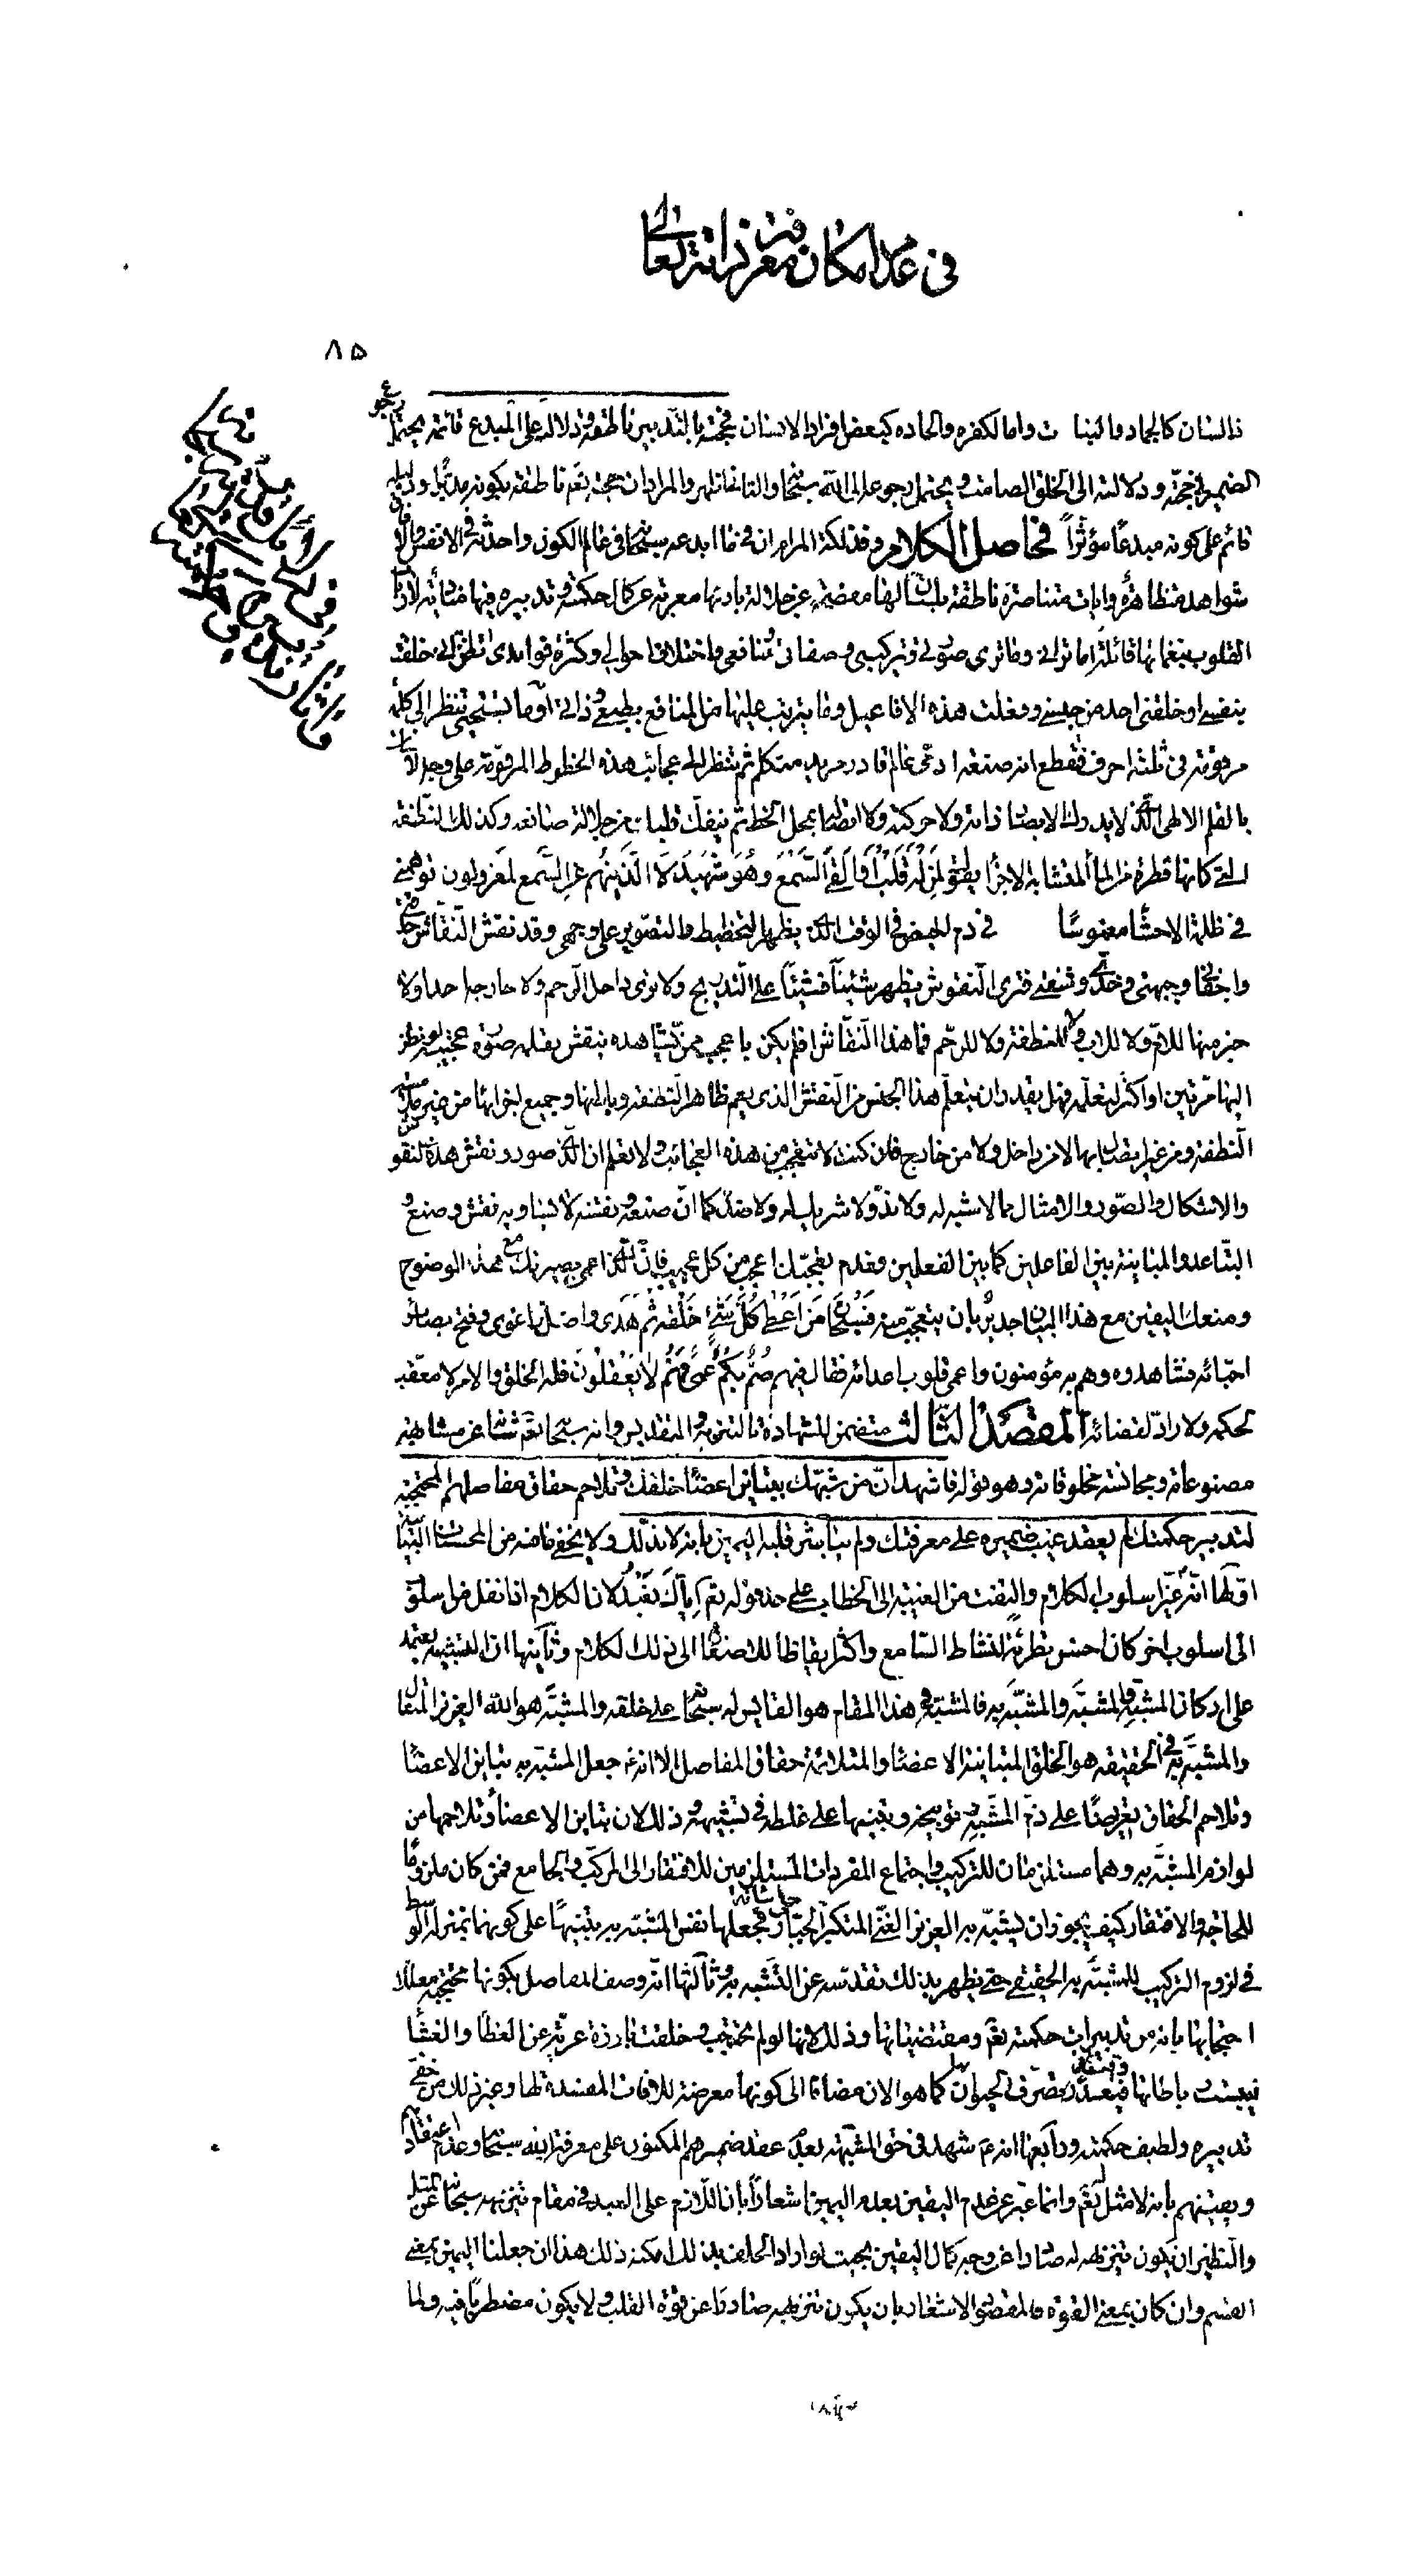 في عدم امكان معرفة ذاته تعالى
٨٥
ذا لسان كالجماد والنبات واما لكفره والحاده كبعض افراد الانسان فحجته بالتدبير ناطقة ودلالته على المبدع قائمة يحتمل رجوع
الضمير في حجته ودلالته الى الخلق الصامت ويحتمل رجوعه الى الله سبحانه والثاني اظهر والمراد ان حجته تعم ناطقة بكونه مدبرا ودليله
قائم على كونه مبدعا مؤثرا فحاصل الكلام وفذلكة المرام ان في ما ابدعه سبحانه في عالم الكون واحدثه في الانفس والافاق
شواهد متظاهرة وايات متناصرة ناطقة بلسان حالها مفصحة عن جلالة بارئها معربة عن كمال حكمته وتدبيره فيها منادية لارباب
القلوب بنغماتها قائلة اما تراني وما ترى صورتي وتركيبي وصفاتي ومنافعي واختلاف احوالي وكثرة فوائدي اتظن اني خلقت
بنفسي او خلقني احد من جنسي وفعلت هذه الافاعيل وما يترتب عليها من المنافع بطبعي وذاتي او ما تستحيي تنظر الى كلمة
مرقومة في ثلثة احرف فتقطع انه صنعة ادمي عالم قادر مريد متكلم ثم تنظر الى عجائب هذه الخطوط المرقومة على وجه
بالقلم الالهي الذي لا يدرك الابصار ذاته ولا حركته ولا اتصاله بمحل الخط ثم ينفك قلبك عن جلالة صانعه وكذلك النطفة
التي كانها قطرة من الماء المتشابه الاجزاء ينطق لمن له قلب او القى السمع وهو شهيد لا الذينهم عن السمع لمعزولون توهمني
في ظلمة الاحشاء مغموسا في دم الحيض في الوقت الذي يظهر التخطيط والتصوير على وجهي وقد نقش النقاش حدقتي
واجفاني وجبهتي وخدي وشفتي فترى النقوش يظهر شيئا فشيئا على التدريج ولا ترى داخل الرحم ولا خارجه احدا ولا
خبر منها للام ولا للاب ولا للنطفة ولا للرحم فما هذا النقاش افلم يكن باعجب ممن تشاهده ينقش بقلمه صورة عجيبة لو نظرت
اليها مرتين او اكثر لتعلمه فهل يقدر ان يتعلم هذا الجنس من النقش الذي يعم ظاهر النطفة وباطنها وجميع اجزائها من غير ملامسة
النطفة ومن غير اتصال بها لا من داخل ولا من خارج فان كنت لا تتعجب من هذه العجائب ولا تعلم ان الذي صور ونقش هذه النقوش
والاشكال والصور والامثال مما لا شبه له ولا ند ولا شريك له ولا ضد كما ان صنعه ونقشه لا يساويه نقش وصنع
التباعد والمباينة بين الفاعلين كما بين الفعلين وعدم تعجبك اعجب من كل عجيب فان الذي اعمى بصيرتك مع هذا الوضوح
ومنعك اليقين مع هذا البيان جدير بان يتعجب منه فسبحان من اعطى كل شيء خلقه ثم هدى واضل واغوى وفتح بصائر
احبائه فشاهدوه وهم به مؤمنون واعمى قلوب اعدائه فقال فيهم صم بكم عمى فهم لا يعقلون فله الخلق والامر لا معقب
لحكمه ولا راد لقضائه المقصد الثالث متضمن للشهادة بالتنزيه والتقديس وانه سبحانه تعم شانه عن مشابهة
مصنوعاته ومجانسة مخلوقاته وهو قوله فاشهد ان من شبهك بتباين اعضاء خلقك وتلاحم حقاق مفاصلهم المحتجبة
لتدبير حكمتك لم يعقد غيب ضميره على معرفتك ولم يباشر قلبه اليقين بانه لا ند لك ولا يخفى ما فيه من المحسنات البيانية
اولها انه غير اسلوب الكلام والتفت من الغيبة الى الخطاب على حد قوله تعم اياك نعبد لان الكلام اذا نقل من اسلوب
الى اسلوب اخر كان احسن تطرئة لنشاط السامع واكثر ايقاظا للاصغاء الى ذلك الكلام وثانيها ان التشبيه يعتمد
على اركان المشبه والمشبه والمشبه به فالمشبه في هذا المقام هو القايس له سبحانه على خلقه والمشبه هو الله العزيز المتعال
والمشبه به في الحقيقة هو الخلق المتباينة الاعضاء والمتلائمة حقاق المفاصل الا انه جعل المشبه به تباين الاعضاء
وتلاحم الحقاق تعريضا على ذم المشبه وتوبيخه وتنبيها على غلطه في تشبيهه وذلك لان تباين الاعضاء وتلاحمها من
لوازم المشبه به وهما مستلزمان للتركيب واجتماع المفردات المستلزمين للافتقار الى المركب والجامع فمن كان ملزوما
للحاجة والافتقار كيف يجوز ان يشبه به العزيز الغني المتكبر الجبار جل شانه فجعلها نفس المشبه به تنبيها على كونهما بمنزلة الوسط
في لزوم التركيب للمشبه به الحقيقي حتى يظهر بذلك تقدسه عن التشبه به وثالثها انه وصف المفاصل بكونها محتجبة معللا
احتجابها بانه من تدبيرات حكمته تعم ومقتضياتها وذلك لانها لو لم تحتجب وخلقت بارزة عرية عن الغطاء والغشاء
ليبست رباطاتها فيتعذر تصرف الحيوان بها كما هو الان مضافا الى كونها معرضة للافات المفسدة لها وغير ذلك من خفي
تدبيره ولطيف حكمته ورابعها انه شهد في حق المشبهة بعدم عقد ضميرهم المكنون على معرفة الله سبحانه وعدم اعتقاد
ويقينهم بانه لا مثل له تعم وانما عبر عن عدم اليقين بعدم اليمين اشعارا بان اللازم على العبد في مقام تنزيهه سبحانه عن المثل
والنظير ان يكون تنزيهه له صادرا عن وجه كمال اليقين بحيث لو اراد الحلف بذلك امكنه ذلك هذا ان جعلنا اليمين بمعنى
القسم وان كان بمعنى القوة فالمقصود الاشعار بان يكون تنزيهه صادرا عن قوة القلب ولا يكون مضطربا فيه ولما